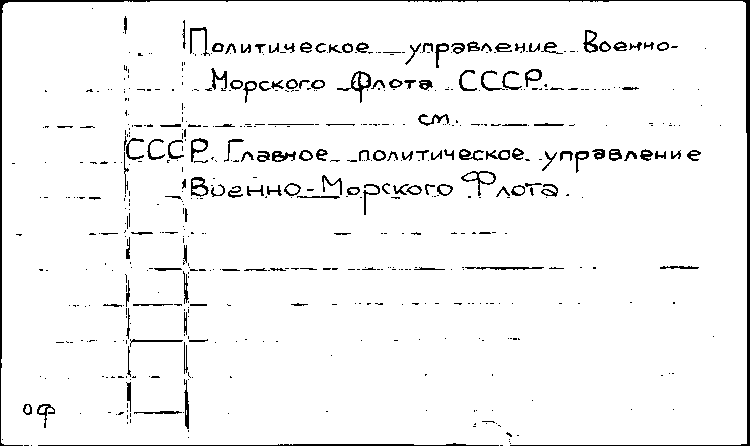 Политическое управление Военно-
Морского Флота СССР.
см.
СССР. Главное политическое управление
Военно-Морского Флота.
оф